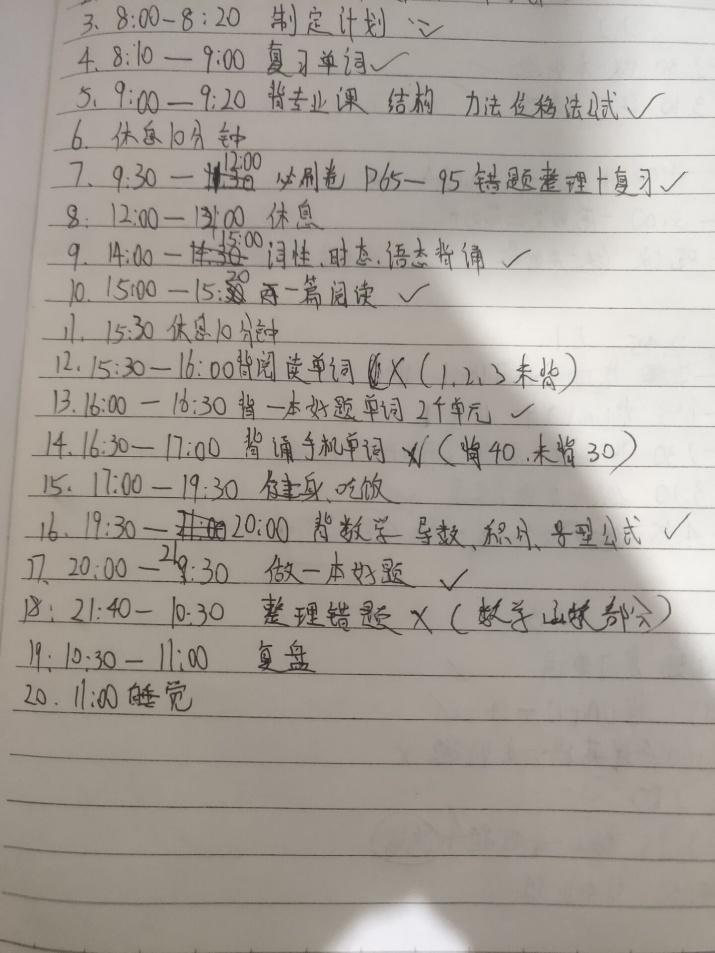 3. 8:00-8:20 制定计划
4. 8:10 — 9:00 复习单词✓
5. 9:00 — 9:20 背专业课 结构 力法位移法公式 ✓
6. 休息10分钟
7. 9:30 — 12:00 必刷卷 P65—95 错题整理+复习✓
8: 12:00 — 14:00 休息
9. 14:00 — 15:00 词性.时态.语态背诵 ✓
10. 15:00 — 15:20 一篇阅读 ✓
11. 15:30 休息10分钟
12. 15:30 — 16:00 背阅读单词 X (1,2,3未背)
13. 16:00 — 16:30 背一本好题单词 2个单元 ✓
14. 16:30 — 17:00 背诵手机单词 X (背40.未背30)
15. 17:00 — 19:30 健身、吃饭
16. 19:30 — 20:00 背数学 导数、积分、公式 ✓
17. 20:00 — 21:30 做一本好题 ✓
18: 21:40 — 10:30 整理错题 X (数学函数部分)
19: 10:30 — 11:00 复盘
20. 11:00 睡觉